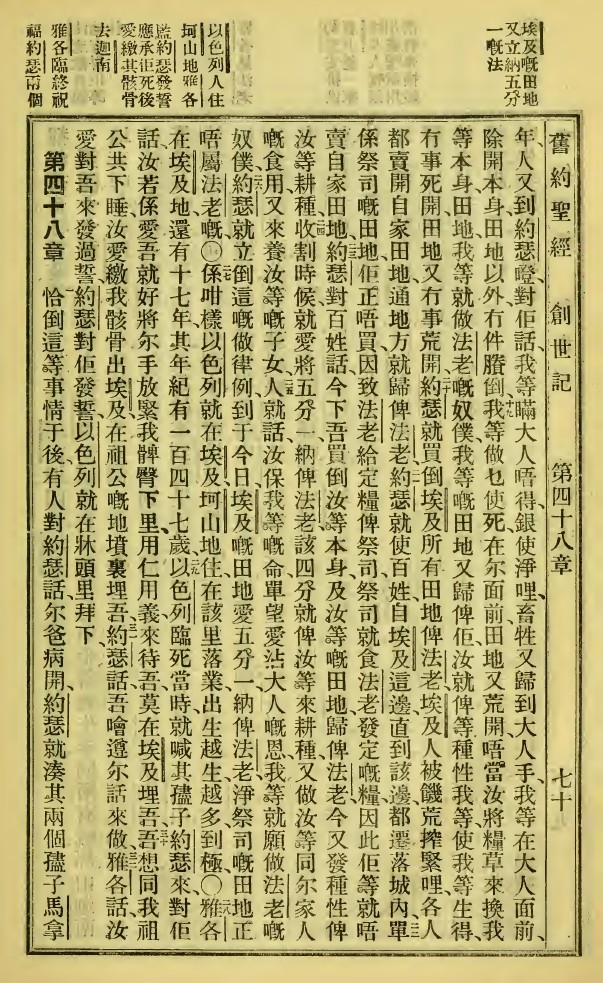 埃及嘅田地
又立納五分
一嘅法
以色列人住
坷山地雅各
監約瑟發誓
應承佢死後
愛繳其骸骨
去迦南
雅各臨終祝
福約瑟兩個
舊約聖經 創世記 第四十八章 七十
年人又到約瑟嶝對佢話我等瞞大人唔得銀使淨哩畜牲又歸到大人手我等在大人面前
除開本身田地以外冇件賸倒我等做乜使死在尔面前田地又荒開唔當汝將糧草來換我
等本身田地我等就做法老嘅奴僕我等嘅田地又歸俾佢汝就俾等種性我等使我等生得
冇事死開田地又冇事荒開約瑟就買倒埃及所有田地俾法老埃及人被饑荒搾緊哩各人
都賣開自家田地通地方就歸俾法老約瑟就使百姓自埃及這邊直到該邊都遷落城內單
係祭司嘅田地佢正唔買因致法老給定糧俾祭司祭司就食法老發定嘅糧因此佢等就唔
賣自家田地約瑟對百姓話今下吾買倒汝等本身及汝等嘅田地歸俾法老今又發種性俾
汝等耕種收割時候就愛將五分一納俾法老該四分就俾汝等來耕種又做汝等同尔家人
嘅食用又來養汝等嘅子女人就話汝保我等嘅命單望愛沾大人嘅恩我等就願做法老嘅
奴僕約瑟就立倒這嘅做律例到于今日埃及嘅田地愛五分一納俾法老淨祭司嘅田地正
唔屬法老嘅〇係咁樣以色列就在埃及坷山地住在該里落業出生越生越多到極〇雅各
在埃及地還有十七年其年紀有一百四十七歲以色列臨死當時就喊其孻子約瑟來對佢
話汝若係愛吾就好將尔手放緊我髀臀下里用仁用義來待吾莫在埃及埋吾吾想同我祖
公共下睡汝愛繳我骸骨出埃及在祖公嘅地墳裏埋吾約瑟話吾噲遵尔話來做雅各話汝
愛對吾來發過誓約瑟對佢發誓以色列就在牀頭里拜下
第四十八章 恰倒這等事情于後有人對約瑟話尔爸病開約瑟就湊其兩個孻子馬拿